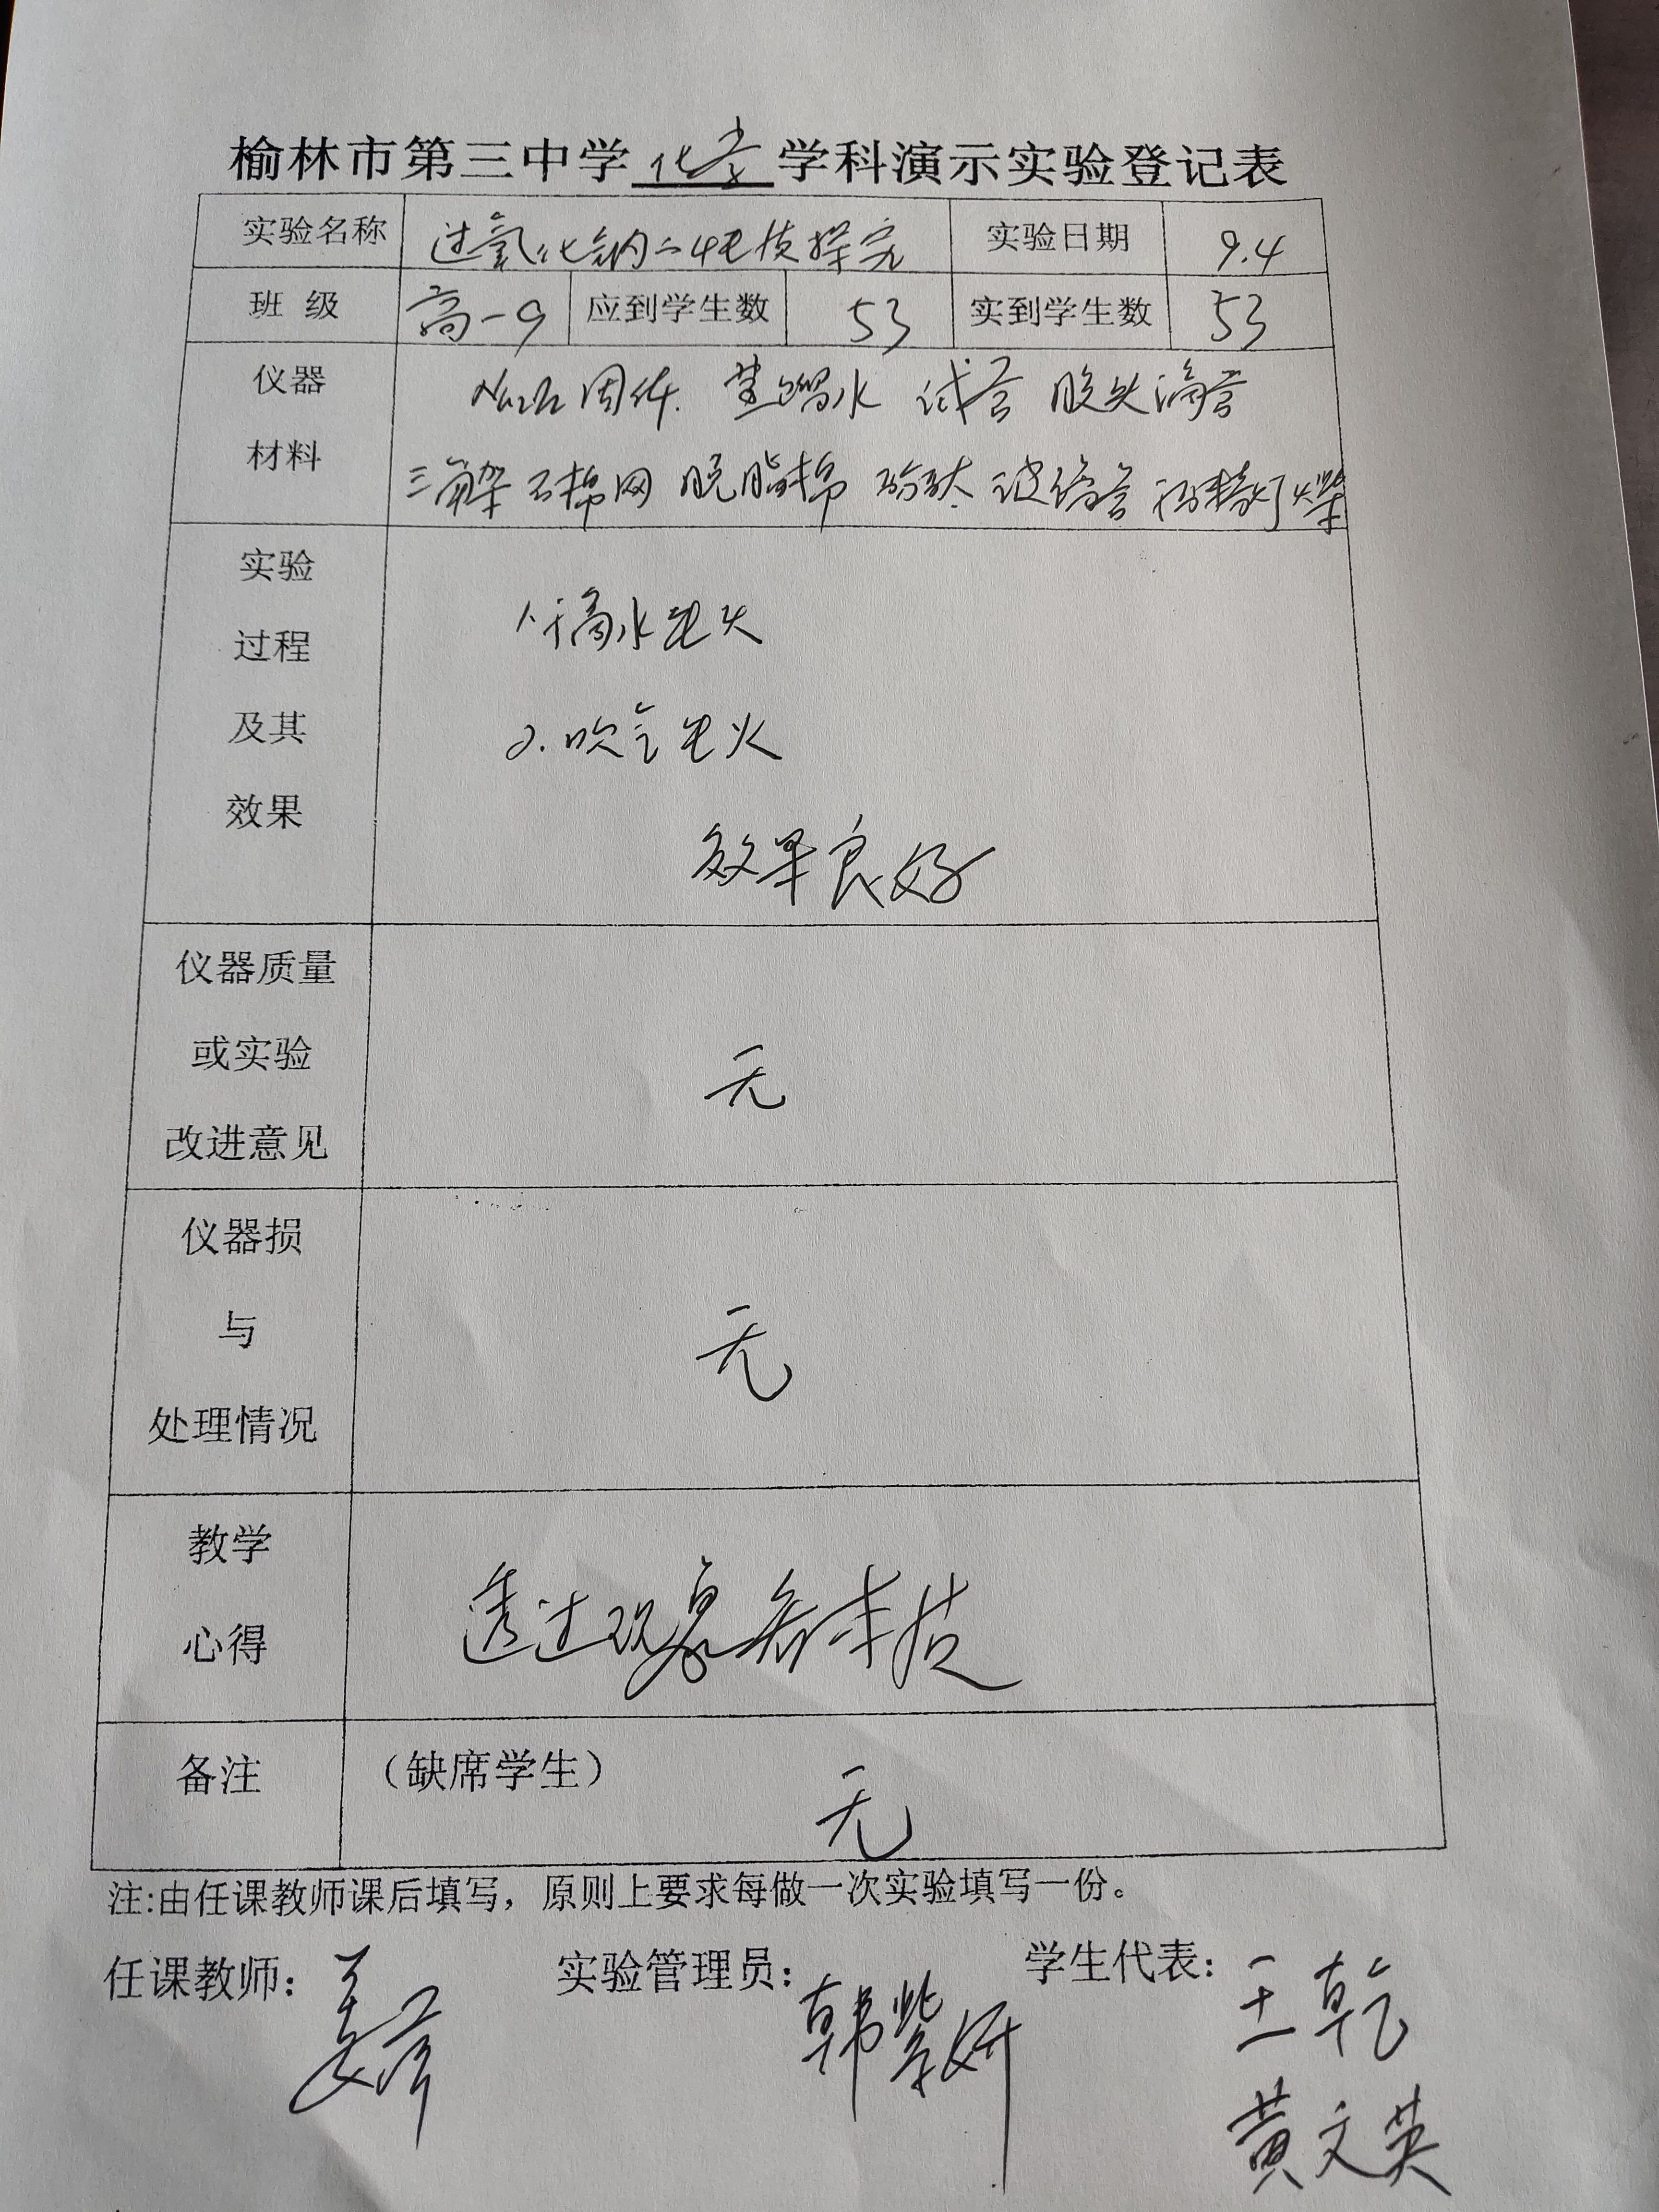 榆林市第三中学化学学科演示实验登记表
实验名称 过氧化钠的性质探究 实验日期 9.4
班 级 高一9 应到学生数 53 实到学生数 53
仪器 固体. 蒸馏水 试管 胶头滴管
材料 三角架 石棉网 脱脂棉 玻璃管 酒精灯
实验
过程
及其
效果
1.滴水生火
2.吹气生火
效果良好
仪器质量
或实验
改进意见
无
仪器损
与
处理情况
无
教学
心得
透过现象看本质
备注 (缺席学生) 无
注:由任课教师课后填写，原则上要求每做一次实验填写一份。
任课教师: 姜 实验管理员: 韩紫妍 学生代表: 王乾
黄文英